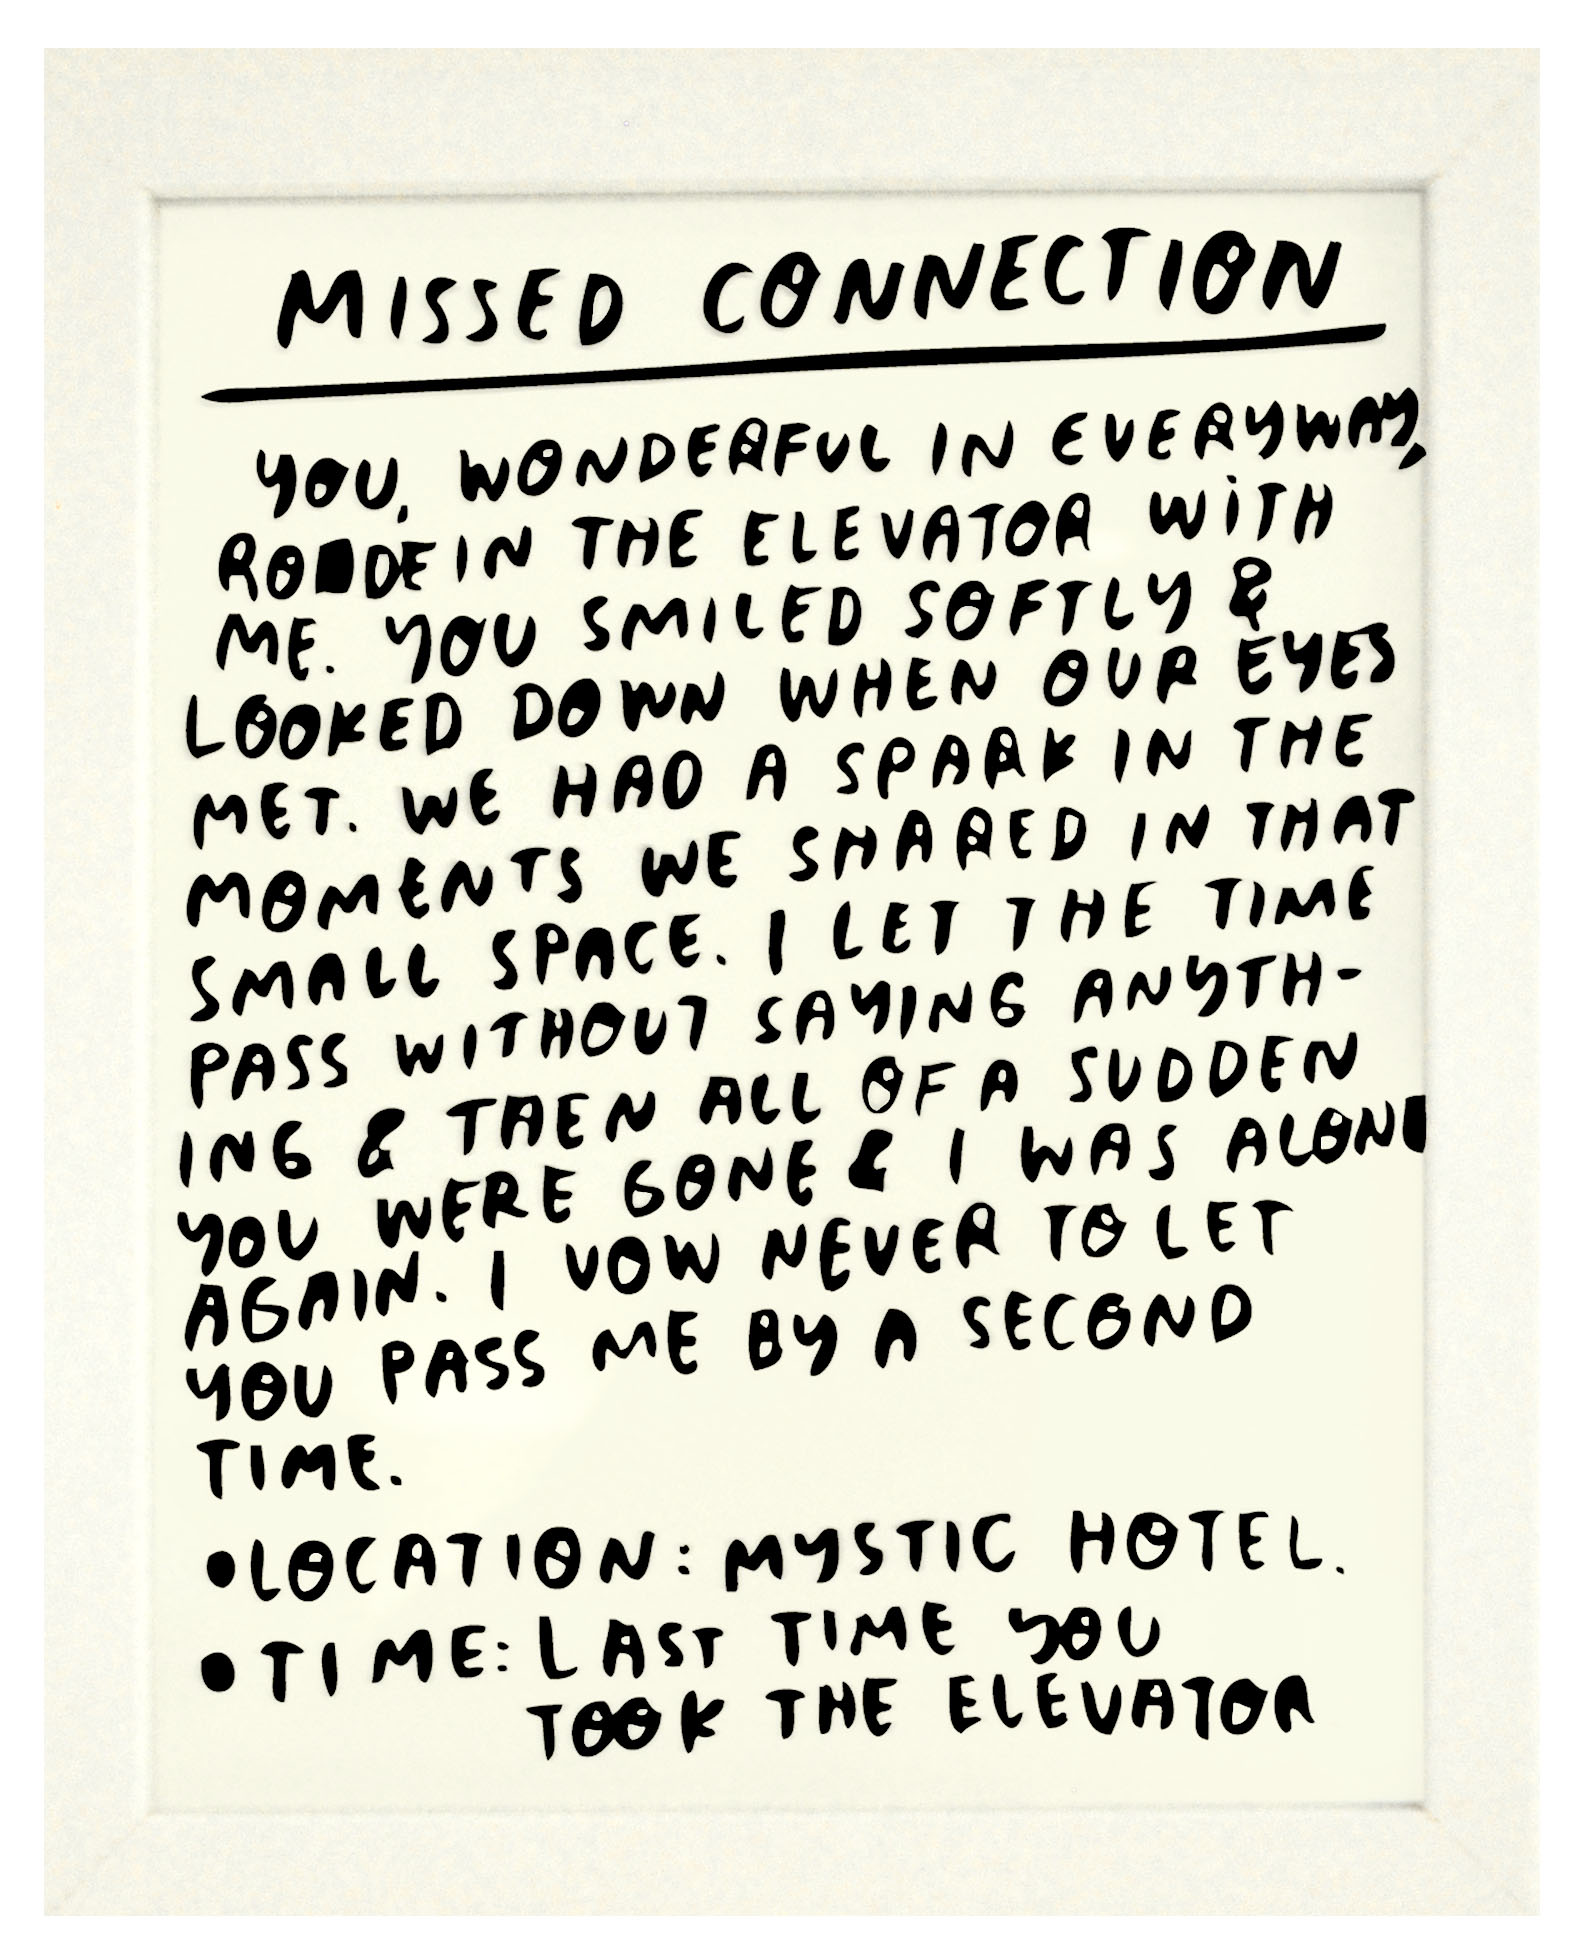 MISSED CONNECTION
YOU, WONDERFUL IN EVERYWAY,
RODE IN THE ELEVATOR WITH
ME. YOU SMILED SOFTLY &
LOOKED DOWN WHEN OUR EYES
MET. WE HAD A SPARK IN THE
MOMENTS WE SHARED IN THAT
SMALL SPACE. I LET THE TIME
PASS WITHOUT SAYING ANYTH-
ING & THEN ALL OF A SUDDEN
YOU WERE GONE & I WAS ALONE
AGAIN. I VOW NEVER TO LET
YOU PASS ME BY A SECOND
TIME.
• LOCATION: MYSTIC HOTEL.
• TIME: LAST TIME YOU
TOOK THE ELEVATOR